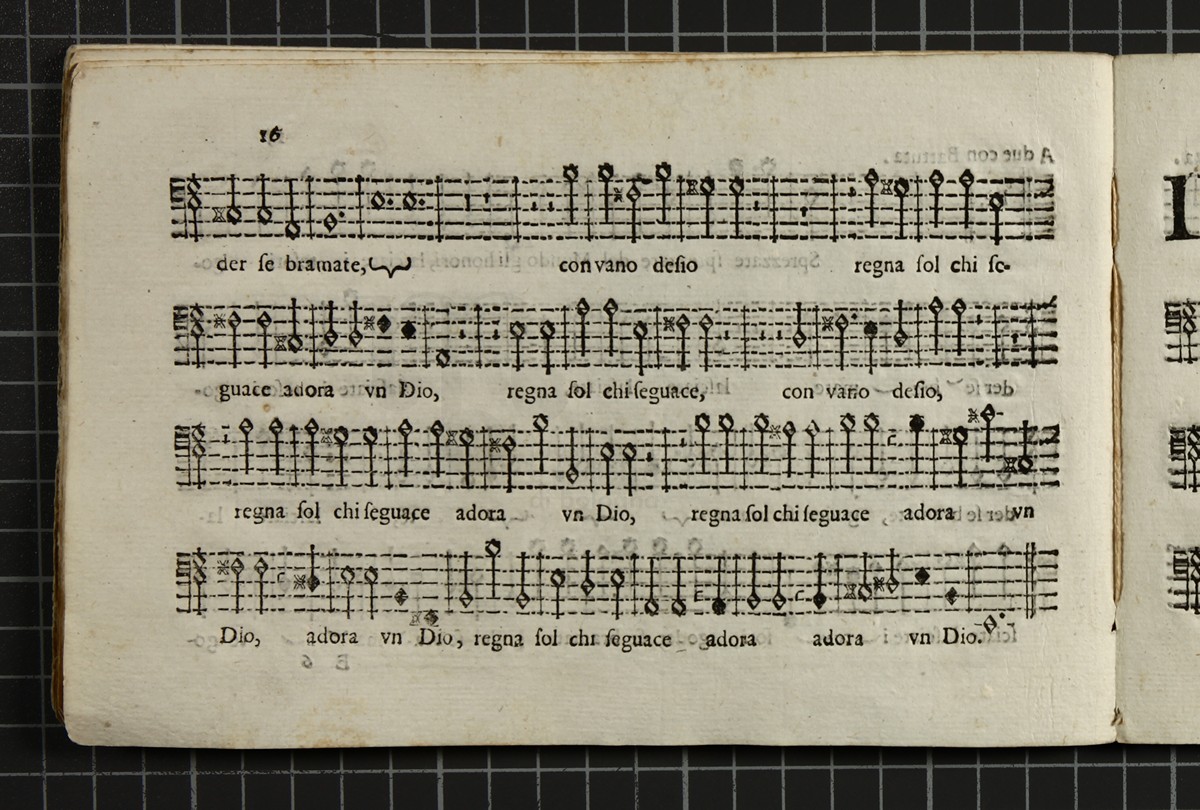 16
A due con Battuta.
der ſe bramate, con vano deſio regna ſol chi ſe-
guace adora vn Dio, regna ſol chi ſeguace, con vano deſio,
regna ſol chi ſeguace adora vn Dio, regna ſol chi ſeguace adora vn
Dio, adora vn Dio, regna ſol chi ſeguace adora adora vn Dio.